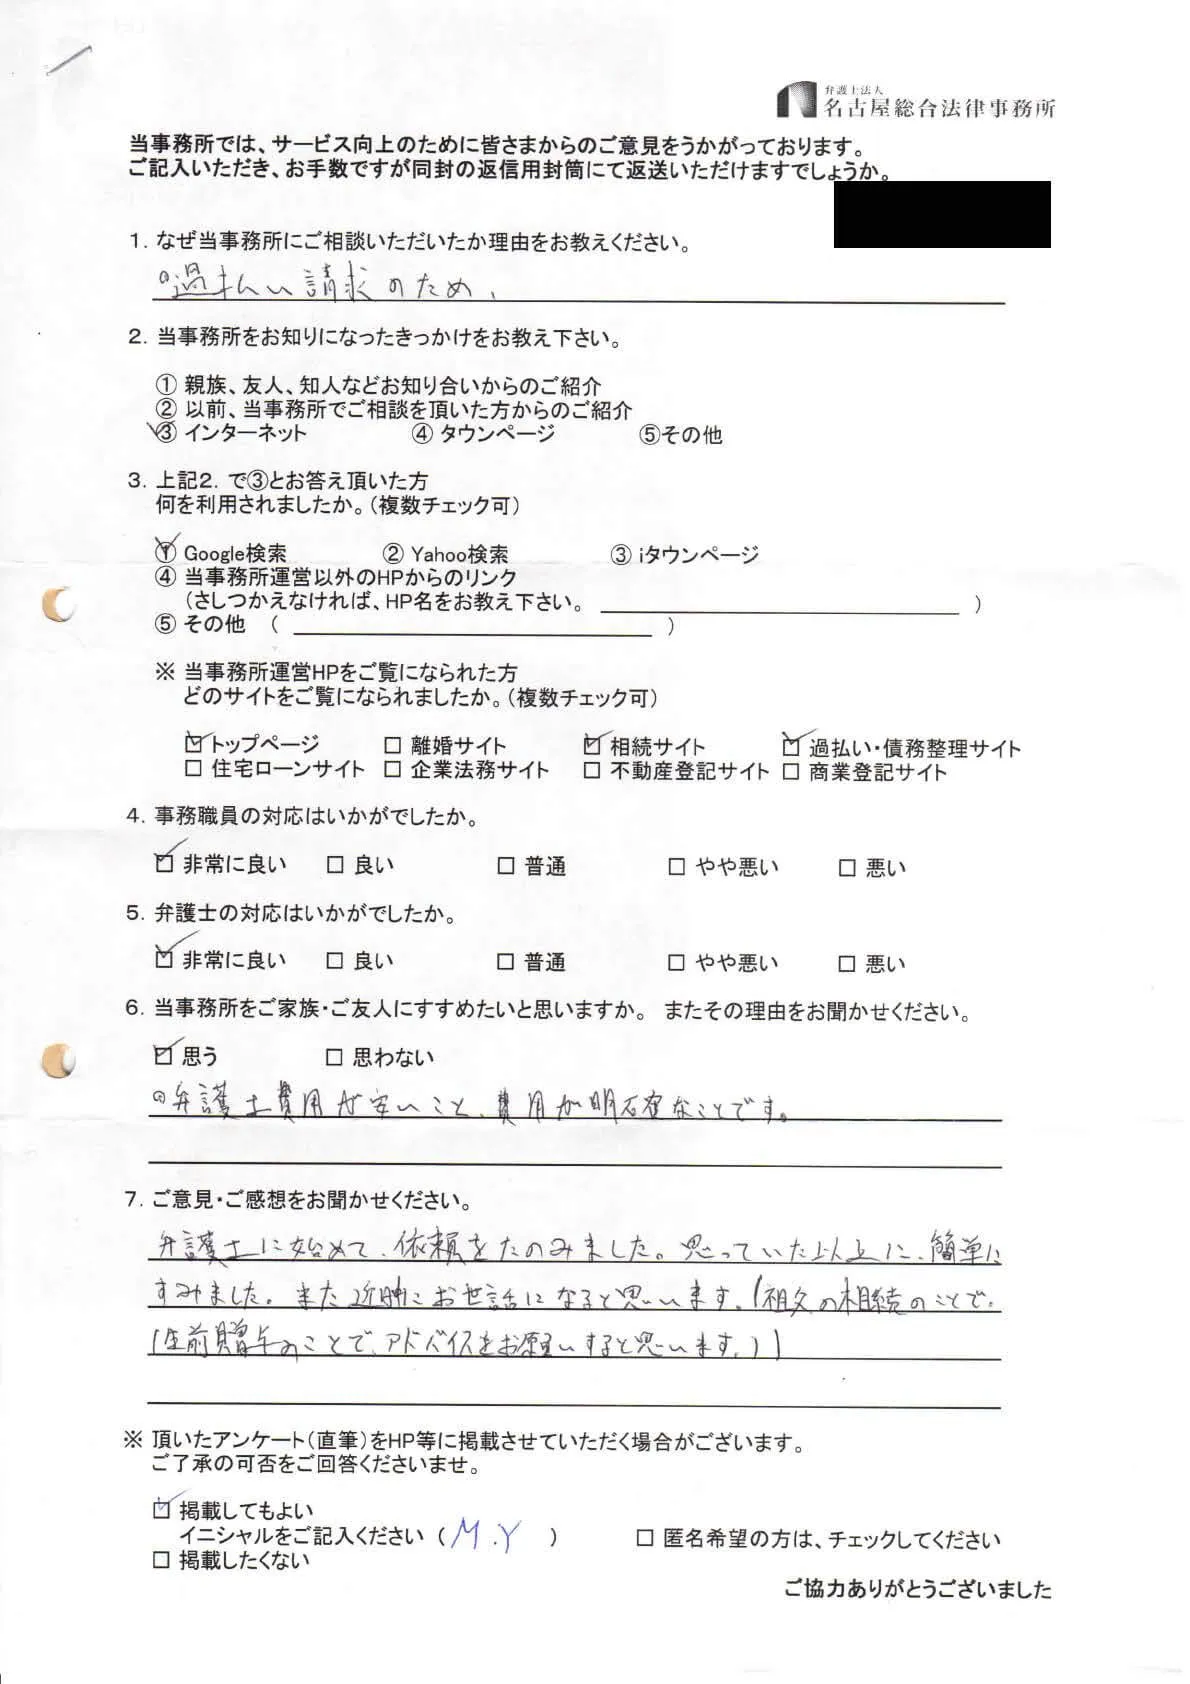 弁護士法人
名古屋総合法律事務所
当事務所では、サービス向上のために皆さまからのご意見をうかがっております。
ご記入いただき、お手数ですが同封の返信用封筒にて返送いただけますでしょうか。
1. なぜ当事務所にご相談いただいたか理由をお教えください。
過払い請求のため、
2. 当事務所をお知りになったきっかけをお教え下さい。
① 親族、友人、知人などお知り合いからのご紹介
② 以前、当事務所でご相談を頂いた方からのご紹介
③ インターネット ④ タウンページ ⑤その他
3. 上記2. で③とお答え頂いた方
何を利用されましたか。(複数チェック可)
① Google検索 ② Yahoo検索 ③ iタウンページ
④ 当事務所運営以外のHPからのリンク
(さしつかえなければ、HP名をお教え下さい。 )
⑤ その他 ( )
※ 当事務所運営HPをご覧になられた方
どのサイトをご覧になられましたか。(複数チェック可)
☑ トップページ □ 離婚サイト ☑ 相続サイト ☑ 過払い・債務整理サイト
□ 住宅ローンサイト □ 企業法務サイト □ 不動産登記サイト □ 商業登記サイト
4. 事務職員の対応はいかがでしたか。
☑ 非常に良い □ 良い □ 普通 □ やや悪い □ 悪い
5. 弁護士の対応はいかがでしたか。
☑ 非常に良い □ 良い □ 普通 □ やや悪い □ 悪い
6. 当事務所をご家族・ご友人にすすめたいと思いますか。 またその理由をお聞かせください。
☑ 思う □ 思わない
弁護士費用が安いこと、費用が明確なことです。
7. ご意見・ご感想をお聞かせください。
弁護士に始めて、依頼をたのみました。思っていた以上に、簡単に
すみました。また近時にお世話になると思います。(祖父の相続のことで。
(生前贈与のことで、アドバイスをお願いすると思います。))
※ 頂いたアンケート(直筆)をHP等に掲載させていただく場合がございます。
ご了承の可否をご回答くださいませ。
☑ 掲載してもよい
イニシャルをご記入ください ( M.Y ) □ 匿名希望の方は、チェックしてください
□ 掲載したくない
ご協力ありがとうございました